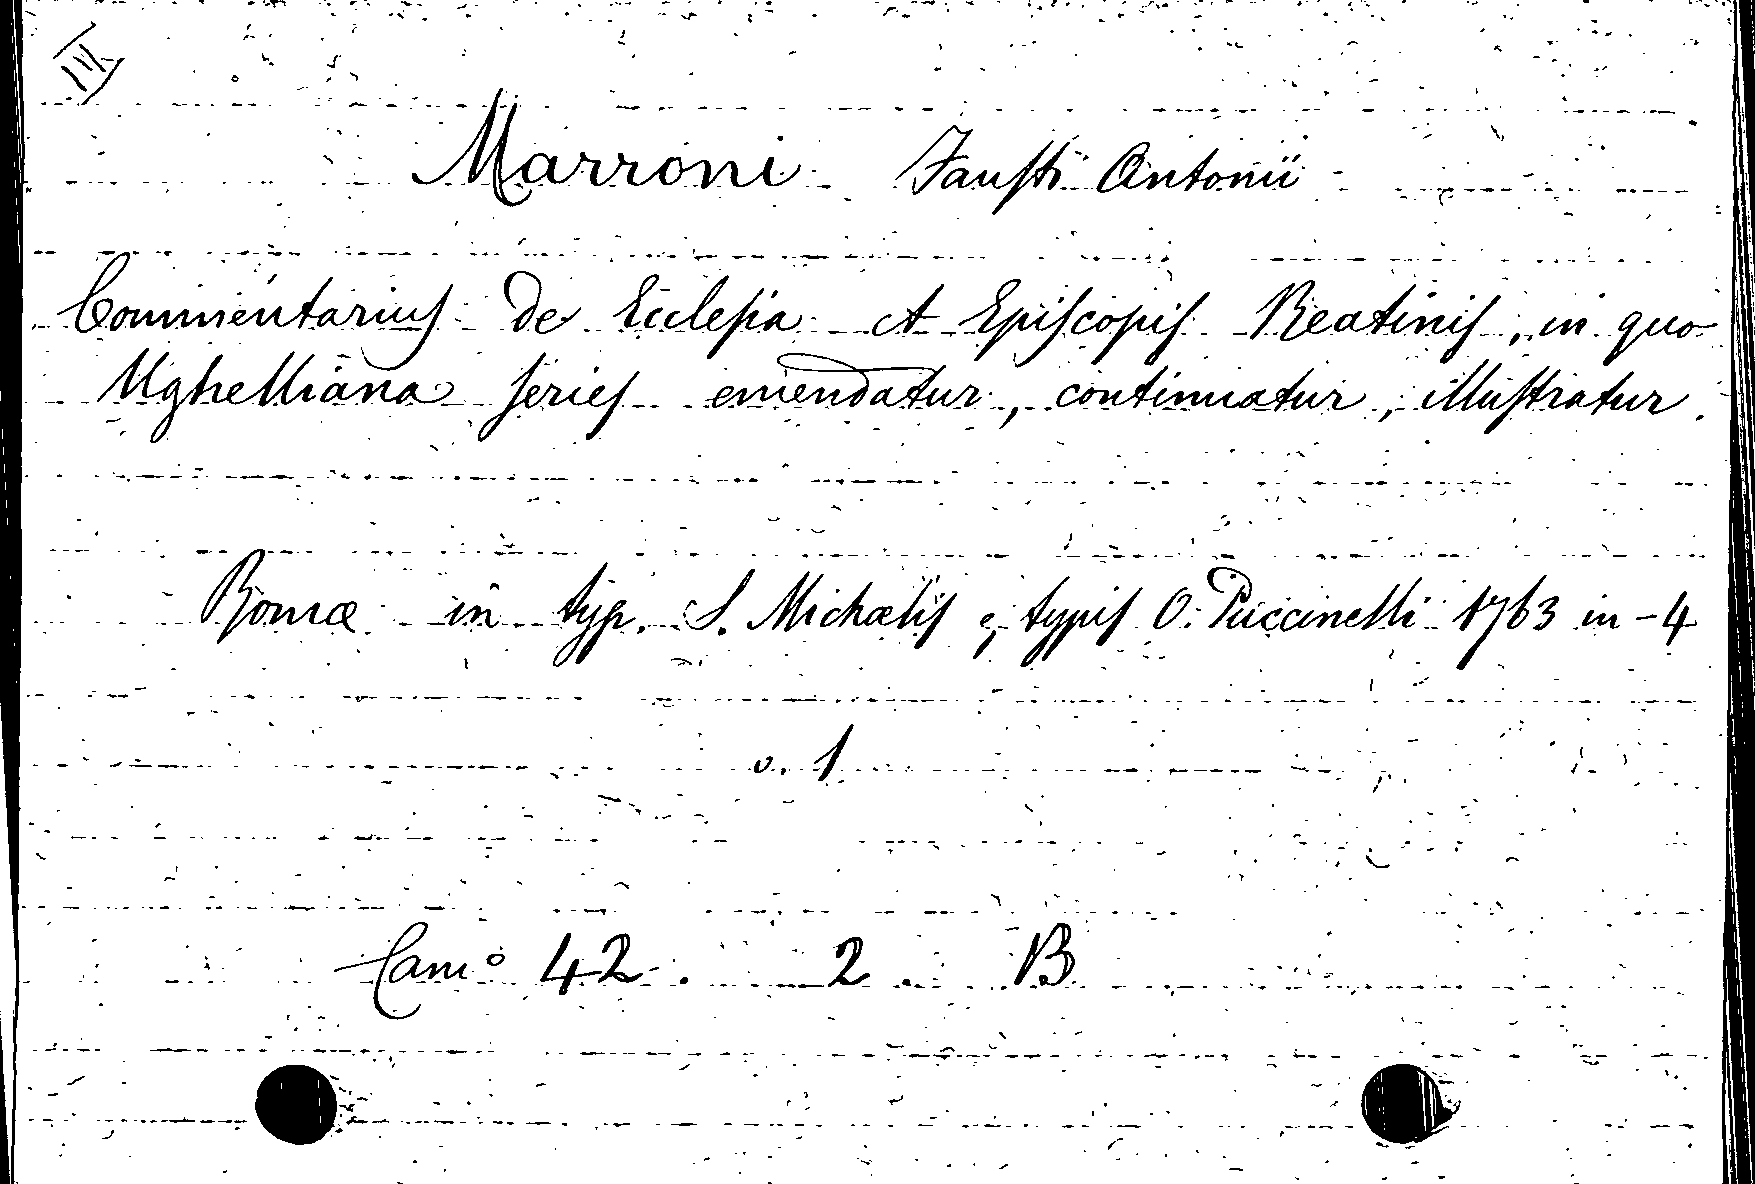 Marroni Fausti Antonii
Commentarius de Ecclesia et Episcopis Reatinis, in quo
Ughelliana series emendatur, continuatur, illustratur.
Romæ in typ. S. Michælis, typis O. Puccinelli 1763 in-4
v. 1
Cam° 42. 2. B